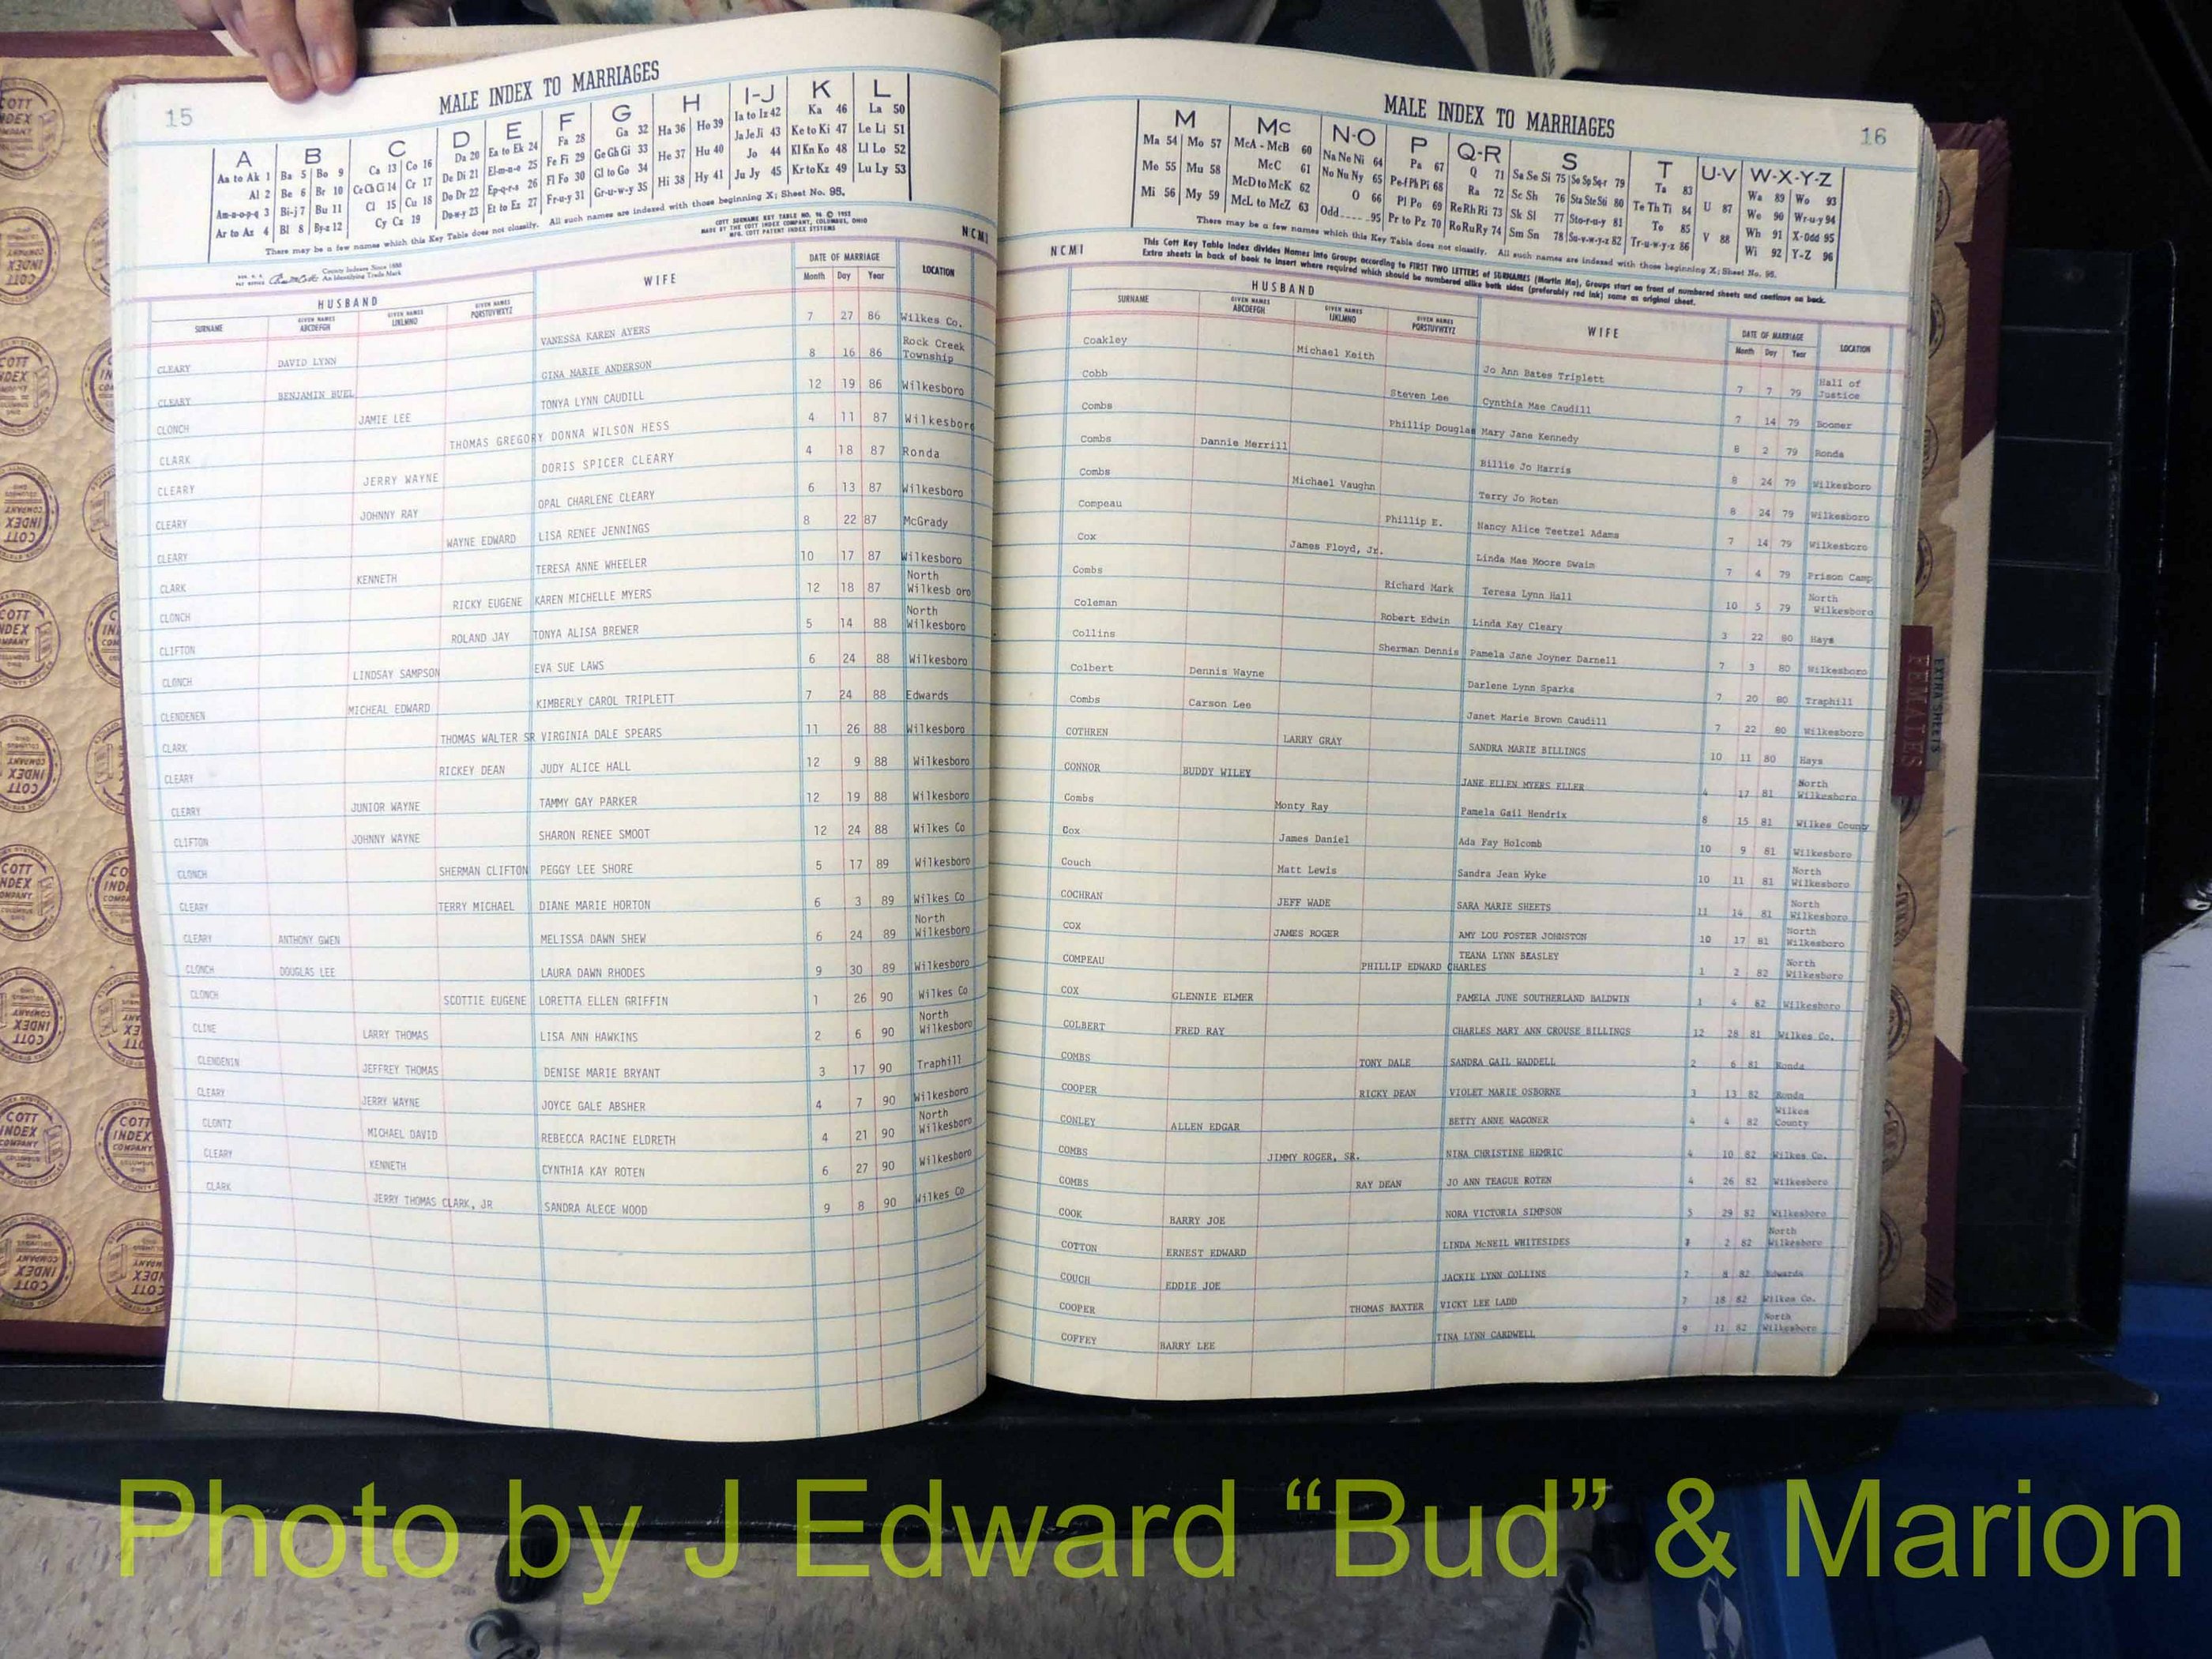 15
MALE INDEX TO MARRIAGES
A B C D E F G H I-J K L
Aa to Ak 1 Ba 5 Bo 9 Ca 13 Co 16 Da 20 Ea to Ek 24 Fa 28 Ga 32 Ha 36 Ho 39 Ia to Iz 42 Ka 46 La 50
Al 2 Be 6 Br 10 Ce Ch Ci 14 Cr 17 De Di 21 El-m-n-o 25 Fe Fi 29 Ge Gh Gi 33 He 37 Hu 40 Ja Je Ji 43 Ke to Ki 47 Le Li 51
Am-n-o-p-q 3 Bi-j 7 Bu 11 Cl 15 Cu 18 Do Dr 22 Ep-q-r-s 26 Fl Fo 30 Gl to Go 34 Hi 38 Hy 41 Jo 44 Kl Kn Ko 48 Ll Lo 52
Ar to Az 4 Bl 8 By-z 12 Cy Cz 19 Du-w-y 23 Et to Ez 27 Fr-u-y 31 Gr-u-w-y 35 Ju Jy 45 Kr to Kz 49 Lu Ly 53
There may be a few names which this Key Table does not classify. All such names are indexed with those beginning X; Sheet No. 95.
COTT SURNAME KEY TABLE NO. 96 © 1952
MADE BY THE COTT INDEX COMPANY, COLUMBUS, OHIO
MFG. COTT PATENT INDEX SYSTEMS
NCMI
County Indexes Since 1888
An Identifying Trade Mark
HUSBAND WIFE DATE OF MARRIAGE LOCATION
SURNAME GIVEN NAMES ABCDEFGH GIVEN NAMES IJKLMNO GIVEN NAMES PQRSTUVWXYZ Month Day Year
CLEARY DAVID LYNN VANESSA KAREN AYERS 7 27 86 Wilkes Co.
CLEARY BENJAMIN BUEL GINA MARIE ANDERSON 8 16 86 Rock Creek Township
CLONCH JAMIE LEE TONYA LYNN CAUDILL 12 19 86 Wilkesboro
CLARK THOMAS GREGORY DONNA WILSON HESS 4 11 87 Wilkesboro
CLEARY JERRY WAYNE DORIS SPICER CLEARY 4 18 87 Ronda
CLEARY JOHNNY RAY OPAL CHARLENE CLEARY 6 13 87 Wilkesboro
CLEARY WAYNE EDWARD LISA RENEE JENNINGS 8 22 87 McGrady
CLARK KENNETH TERESA ANNE WHEELER 10 17 87 Wilkesboro
CLONCH RICKY EUGENE KAREN MICHELLE MYERS 12 18 87 North Wilkesb oro
CLIFTON ROLAND JAY TONYA ALISA BREWER 5 14 88 North Wilkesboro
CLONCH LINDSAY SAMPSON EVA SUE LAWS 6 24 88 Wilkesboro
CLENDENEN MICHEAL EDWARD KIMBERLY CAROL TRIPLETT 7 24 88 Edwards
CLARK THOMAS WALTER SR VIRGINIA DALE SPEARS 11 26 88 Wilkesboro
CLEARY RICKEY DEAN JUDY ALICE HALL 12 9 88 Wilkesboro
CLEARY JUNIOR WAYNE TAMMY GAY PARKER 12 19 88 Wilkesboro
CLIFTON JOHNNY WAYNE SHARON RENEE SMOOT 12 24 88 Wilkes Co
CLONCH SHERMAN CLIFTON PEGGY LEE SHORE 5 17 89 Wilkesboro
CLEARY TERRY MICHAEL DIANE MARIE HORTON 6 3 89 Wilkes Co
CLEARY ANTHONY GWEN MELISSA DAWN SHEW 6 24 89 North Wilkesboro
CLONCH DOUGLAS LEE LAURA DAWN RHODES 9 30 89 Wilkesboro
CLONCH SCOTTIE EUGENE LORETTA ELLEN GRIFFIN 1 26 90 Wilkes Co
CLINE LARRY THOMAS LISA ANN HAWKINS 2 6 90 North Wilkesboro
CLENDENIN JEFFREY THOMAS DENISE MARIE BRYANT 3 17 90 Traphill
CLEARY JERRY WAYNE JOYCE GALE ABSHER 4 7 90 Wilkesboro
CLONTZ MICHAEL DAVID REBECCA RACINE ELDRETH 4 21 90 North Wilkesboro
CLEARY KENNETH CYNTHIA KAY ROTEN 6 27 90 Wilkesboro
CLARK JERRY THOMAS CLARK, JR SANDRA ALECE WOOD 9 8 90 Wilkes Co
MALE INDEX TO MARRIAGES
16
M Mc N-O P Q-R S T U-V W-X-Y-Z
Ma 54 Mo 57 McA - McB 60 Na Ne Ni 64 Pa 67 Q 71 Sa Se Si 75 So Sp Sq-r 79 Ta 83 U 87 Wa 89 Wo 93
Me 55 Mu 58 McC 61 No Nu Ny 65 Pe-f Ph Pi 68 Ra 72 Sc Sh 76 Sta Ste Sti 80 Te Th Ti 84 We 90 Wr-u-y 94
Mi 56 My 59 McD to McK 62 O 66 Pl Po 69 Re Rh Ri 73 Sk Sl 77 Sto-r-u-y 81 To 85 V 88 Wh 91 X-Odd 95
McL to McZ 63 Odd 95 Pr to Pz 70 Ro Ru Ry 74 Sm Sn 78 Su-v-w-y-z 82 Tr-u-w-y-z 86 Wi 92 Y-Z 96
There may be a few names which this Key Table does not classify. All such names are indexed with those beginning X; Sheet No. 95.
NCMI
This Cott Key Table Index divides Names into Groups according to FIRST TWO LETTERS of SURNAMES (Martin Ma), Groups start on front of numbered sheets and continue on back.
Extra sheets in back of book to insert where required which should be numbered alike both sides (preferably red ink) same as original sheet.
HUSBAND WIFE DATE OF MARRIAGE LOCATION
SURNAME GIVEN NAMES ABCDEFGH GIVEN NAMES IJKLMNO GIVEN NAMES PQRSTUVWXYZ Month Day Year
Coakley Michael Keith Jo Ann Bates Triplett 7 7 79 Hall of Justice
Cobb Steven Lee Cynthia Mae Caudill 7 14 79 Boomer
Combs Phillip Douglas Mary Jane Kennedy 8 2 79 Ronda
Combs Dannie Merrill Billie Jo Harris 8 24 79 Wilkesboro
Combs Michael Vaughn Terry Jo Roten 8 24 79 Wilkesboro
Compeau Phillip E. Nancy Alice Teetzel Adams 7 14 79 Wilkesboro
Cox James Floyd, Jr. Linda Mae Moore Swaim 7 4 79 Prison Camp
Combs Richard Mark Teresa Lynn Hall 10 5 79 North Wilkesboro
Coleman Robert Edwin Linda Kay Cleary 3 22 80 Hays
Collins Sherman Dennis Pamela Jane Joyner Darnell 7 3 80 Wilkesboro
Colbert Dennis Wayne Darlene Lynn Sparks 7 20 80 Traphill
Combs Carson Lee Janet Marie Brown Caudill 7 22 80 Wilkesboro
COTHREN LARRY GRAY SANDRA MARIE BILLINGS 10 11 80 Hays
CONNOR BUDDY WILEY JANE ELLEN MYERS ELLER 4 17 81 North Wilkesboro
Combs Monty Ray Pamela Gail Hendrix 8 15 81 Wilkes County
Cox James Daniel Ada Fay Holcomb 10 9 81 Wilkesboro
Couch Matt Lewis Sandra Jean Wyke 10 11 81 North Wilkesboro
COCHRAN JEFF WADE SARA MARIE SHEETS 11 14 81 North Wilkesboro
COX JAMES ROGER AMY LOU FOSTER JOHNSTON 10 17 81 North Wilkesboro
COMPEAU PHILLIP EDWARD CHARLES TEANA LYNN BEASLEY 1 2 82 North Wilkesboro
COX GLENNIE ELMER PAMELA JUNE SOUTHERLAND BALDWIN 1 4 82 Wilkesboro
COLBERT FRED RAY CHARLES MARY ANN CROUSE BILLINGS 12 28 81 Wilkes Co.
COMBS TONY DALE SANDRA GAIL WADDELL 2 6 81 Ronda
COOPER RICKY DEAN VIOLET MARIE OSBORNE 3 13 82 Ronda
CONLEY ALLEN EDGAR BETTY ANNE WAGONER 4 4 82 Wilkes County
COMBS JIMMY ROGER, SR. NINA CHRISTINE HEMRIC 4 10 82 Wilkes Co.
COMBS RAY DEAN JO ANN TEAGUE ROTEN 4 26 82 Wilkesboro
COOK BARRY JOE NORA VICTORIA SIMPSON 5 29 82 Wilkesboro
COTTON ERNEST EDWARD LINDA McNEIL WHITESIDES 2 82 North Wilkesboro
COUCH EDDIE JOE JACKIE LYNN COLLINS 7 8 82 Edwards
COOPER THOMAS BAXTER VICKY LEE LADD 7 18 82 Wilkes Co.
COFFEY BARRY LEE TINA LYNN CARDWELL 9 11 82 North Wilkesboro
EXTRA SHEETS
FEMALES
COTT INDEX COMPANY COLUMBUS OHIO
Photo by J Edward “Bud” & Marion